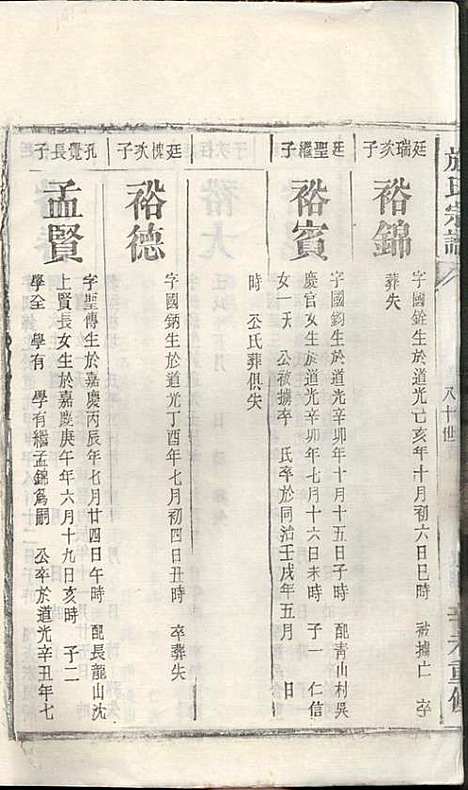 施氏宗譜
八十世
辛未重修
廷瑞次子
裕錦
字國銓生於道光乙亥年十月初六日巳時 被擄亡 卒
葬失
廷聖繼子
裕賓
字國鈞生於道光辛卯年十月十五日子時 配青山村吳
慶官女生於道光辛卯年七月十六日未時 子一 仁信
女一夭 公被擄卒 氏卒於同治壬戌年五月 日
時 公氏葬俱失
廷槐次子
裕德
字國鈵生於道光丁酉年七月初四日丑時 卒葬失
孔覺長子
孟賢
字聖傳生於嘉慶丙辰年七月廿四日午時 配長龍山沈
上賢長女生於嘉慶庚午年六月十九日亥時 子二
學全 學有 學有繼孟錦爲嗣 公卒於道光辛丑年七